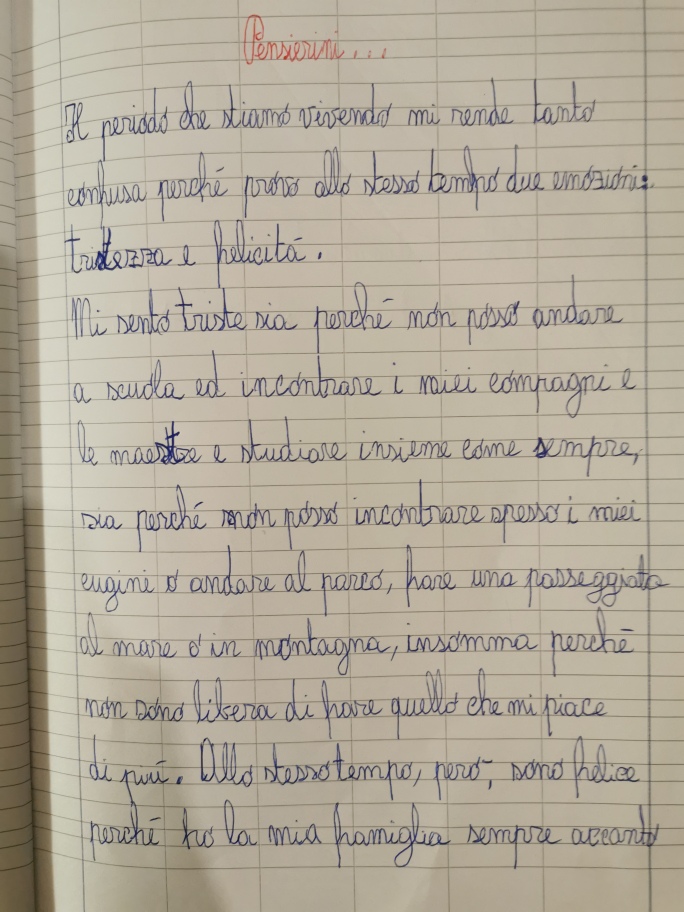 Pensierini...
Il periodo che stiamo vivendo mi rende tanto
confusa perché provo allo stesso tempo due emozioni:
tristezza e felicità.
Mi sento triste sia perché non posso andare
a scuola ed incontrare i miei compagni e
le maestre e studiare insieme come sempre,
sia perché non posso incontrare spesso i miei
cugini o andare al parco, fare una passeggiata
al mare o in montagna, insomma perché
non sono libera di fare quello che mi piace
di più. Allo stesso tempo, però, sono felice
perché ho la mia famiglia sempre accanto